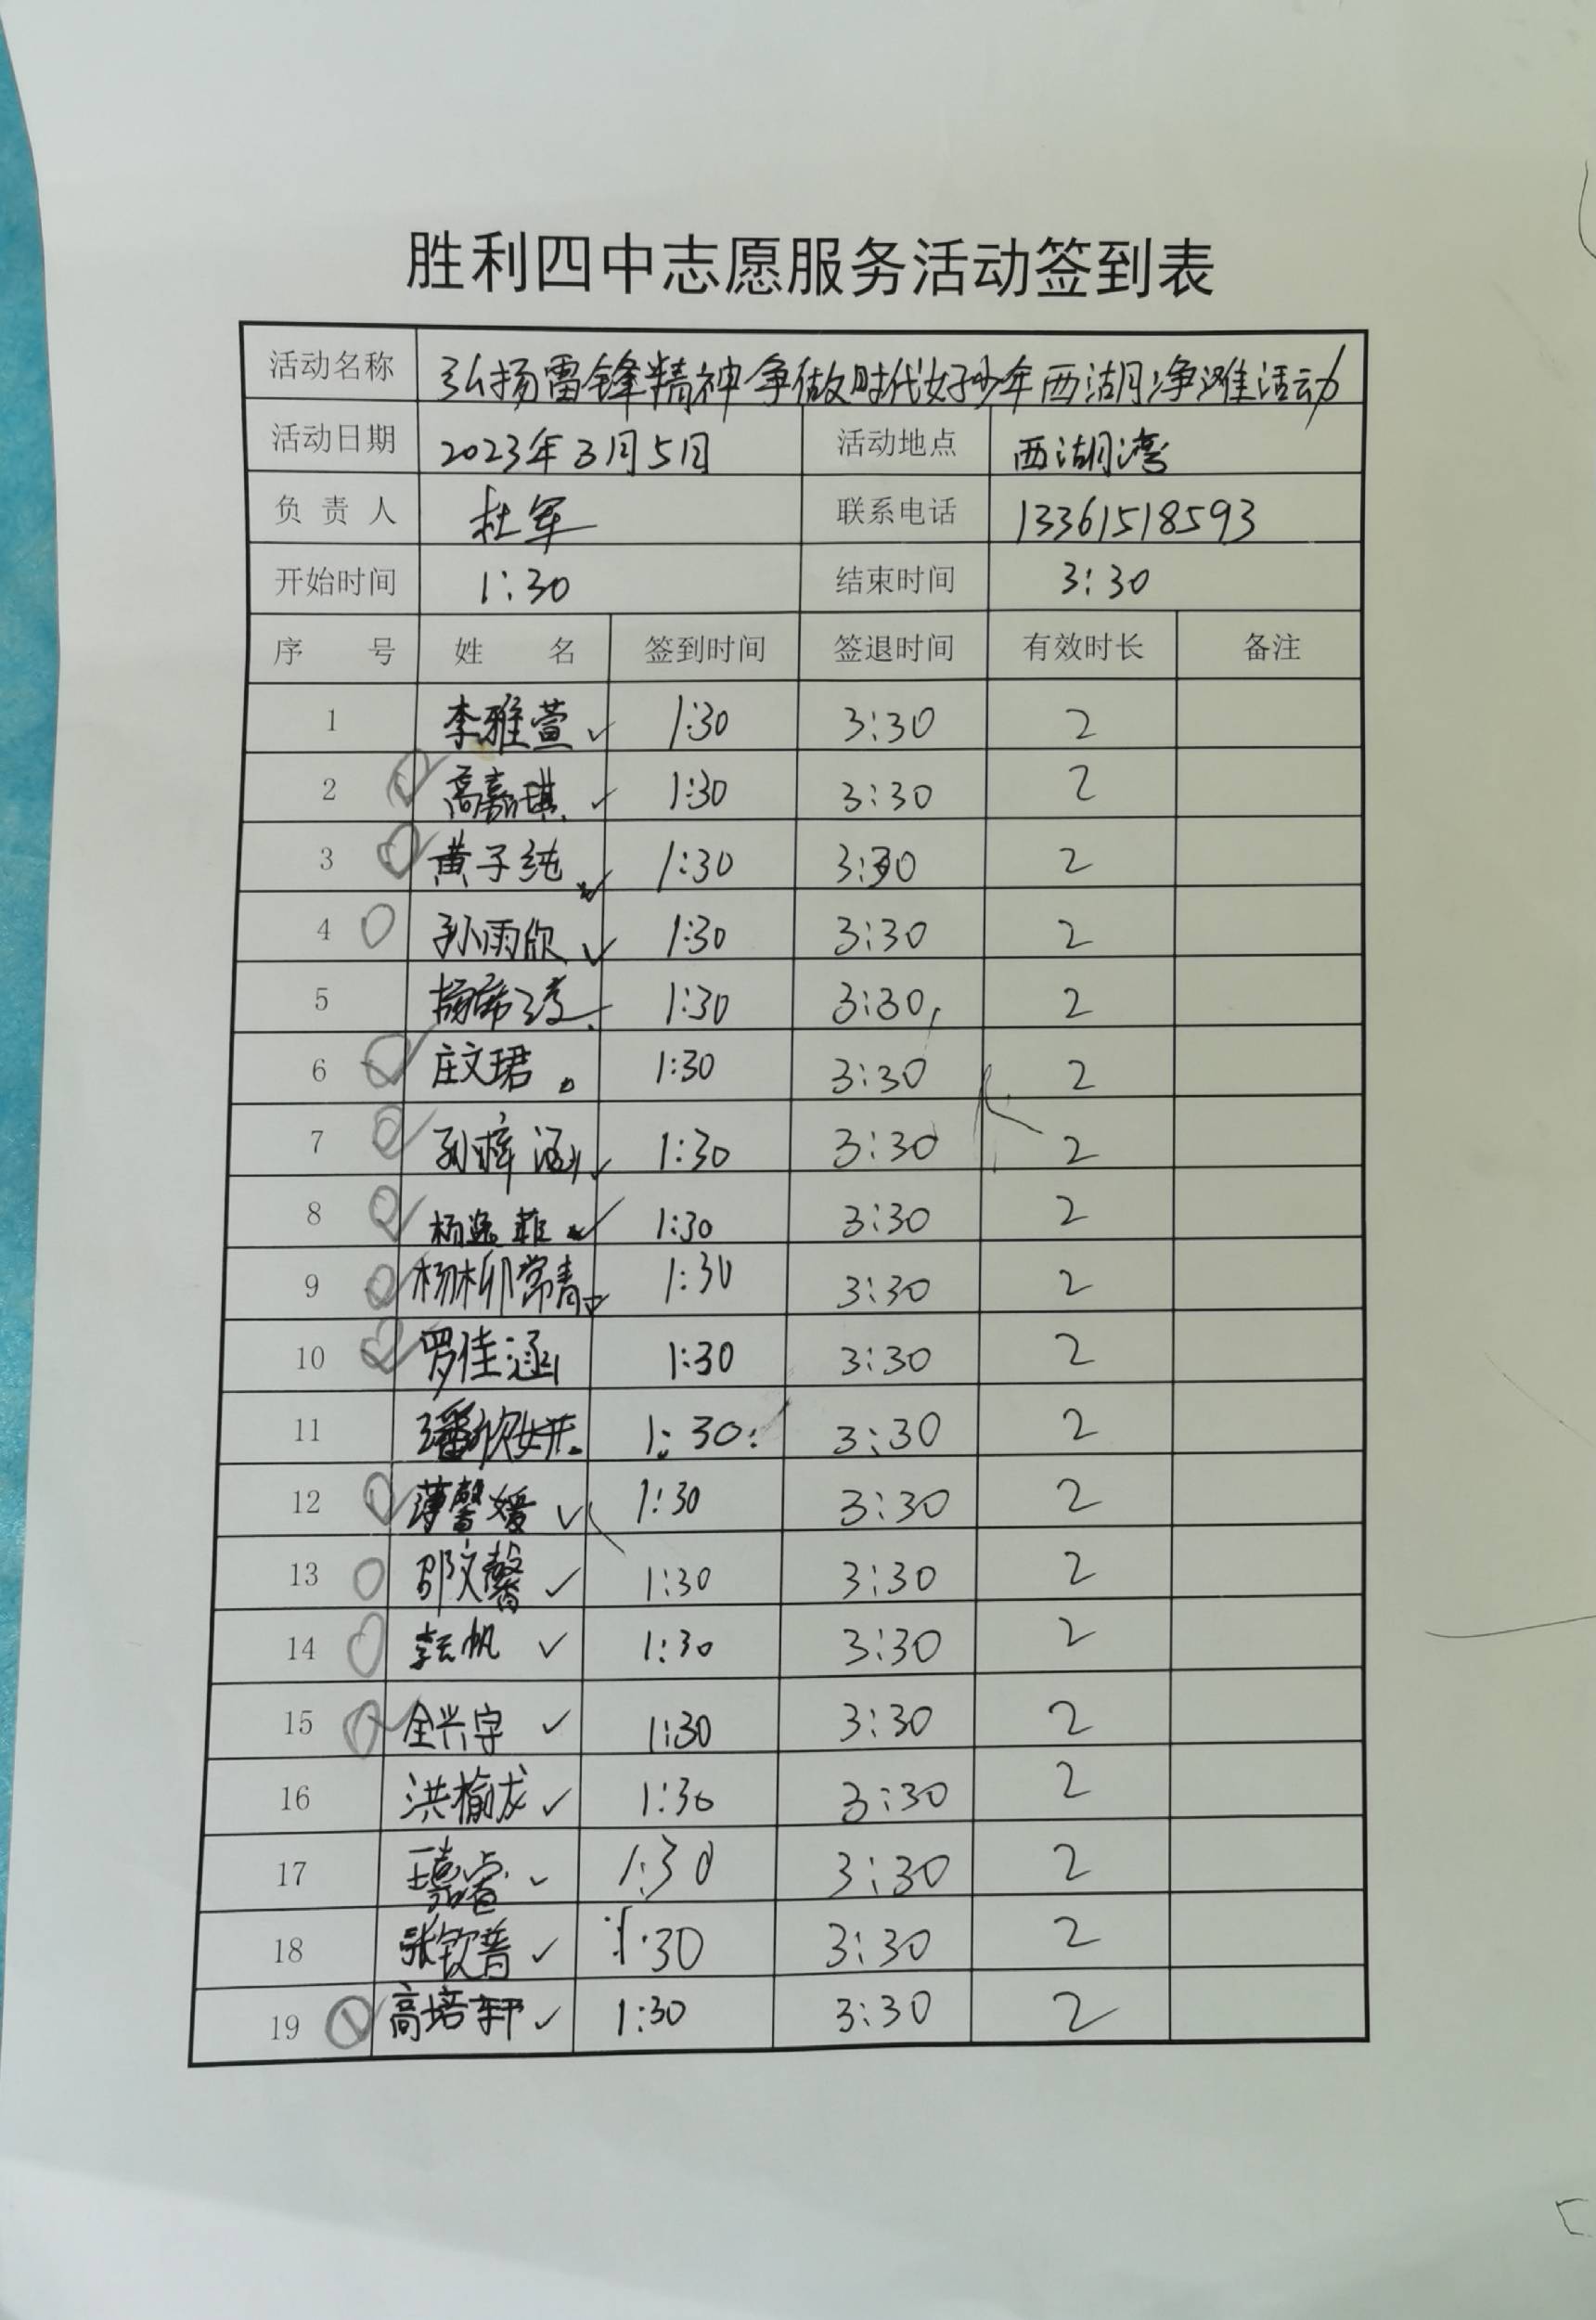 胜利四中志愿服务活动签到表
活动名称 弘扬雷锋精神争做时代好少年西湖净滩活动
活动日期 2023年3月5日 活动地点 西湖湾
负责人 杜军 联系电话 13361518593
开始时间 1:30 结束时间 3:30
序号 姓名 签到时间 签退时间 有效时长 备注
1 李雅萱 1:30 3:30 2
2 高嘉琪 1:30 3:30 2
3 黄子纯 1:30 3:30 2
4 孙雨欣 1:30 3:30 2
5 1:30 3:30 2
6 庄文珺 1:30 3:30 2
7 孙梓涵 1:30 3:30 2
8 杨逸菲 1:30 3:30 2
9 杨柳常青 1:30 3:30 2
10 罗佳涵 1:30 3:30 2
11 潘欣妍 1:30 3:30 2
12 薄馨媛 1:30 3:30 2
13 邵文馨 1:30 3:30 2
14 李云帆 1:30 3:30 2
15 全兴宇 1:30 3:30 2
16 洪榆成 1:30 3:30 2
17 王嘉睿 1:30 3:30 2
18 张钦普 1:30 3:30 2
19 高培轩 1:30 3:30 2